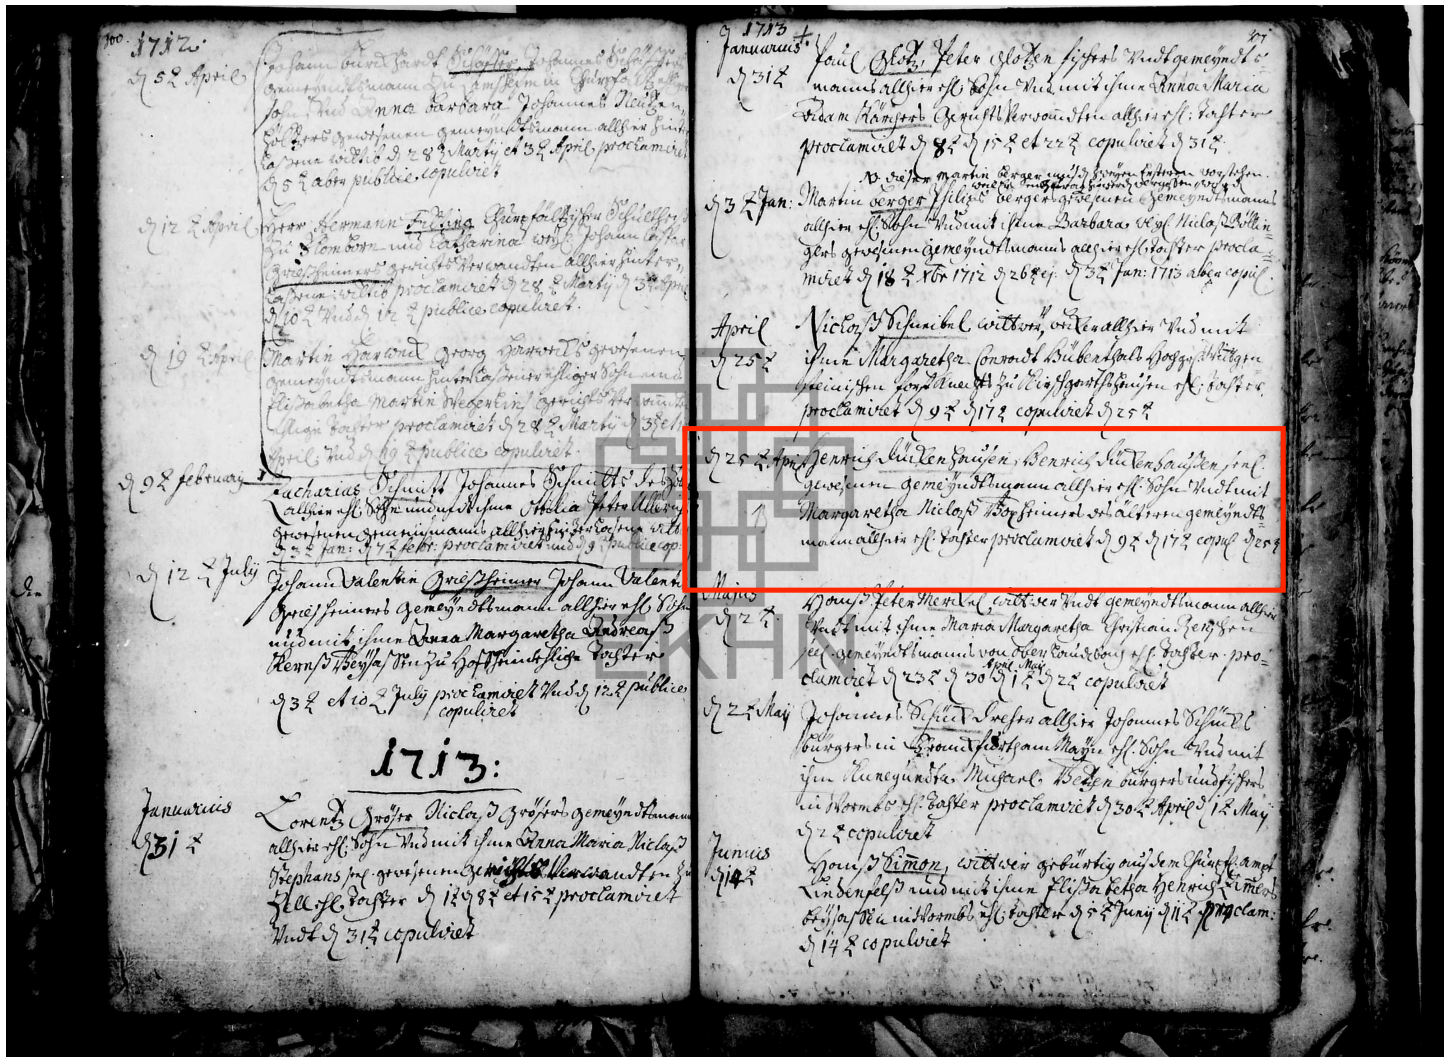 100.
1712.
d 5t April
Johann burckhardt Schäffer, Johannes Schäffers
gemeyndtsmann zu Lamsheim in Churpfaltz ehl.
Sohn Vnd Anna barbara Johannes
gewesenen gemeyndtsmann allhier hinter
lassene wittib d 28t Marty et 3t April proclamiret
d 5t aber publice copuliret
d 12t April
Herr Hermann Churpfältzischer Schultheiß
zu Flomborn und Catharina weyl. Johann
Grießheimers gerichts Verwandten allhier hinter-
lassene wittib proclamiret d 28t Marty d 3t April
d 10t Vnd d 12t publice copuliret.
d 19t April
Martin Hartweck Georg Hartwecks gewesenen
gemeyndtsmann hinterlassener ehliger Sohn und
Elisabetha Martin gerichts Verwandten
ehlige tochter proclamiret d 28t Marty d 3t et 10
April Vnd d 19t publice copuliret.
d 9t february
Zacharias Schmitt Johannes Schmitts des
allhier ehl. Sohn und mit ihme Ottilia Peter
gewesenen gemeinsmanns allhier hinterlasene wittib
d 3t Jan: d 7t febr: proclamiret und d 9t publice cop:
d 12t July
Johann Valentin Grießheimer Johann Valentin
Grießheimers gemeyndtsmann allhier ehl. Sohn
und mit ihme Anna Margaretha Andreaß
Kernß Beysassen zu Hoffheim ehliche Tochter
d 3t et 10t July proclamiret Vnd d 12t publice
copuliret
1713:
Januarius
d 31t
Lorentz Gröser Niclaß Grösers gemeyndtsmann
allhier ehl. Sohn Vnd mit ihme Anna Maria Niclaß
Stephans sel. gewesenen gerichts Verwandten zu
ehl. Tochter d 1t d 8t et 15t proclamiret
Vndt d 31t copuliret
1713
101
Januarius.
d 31t
Paul Glotz, Peter Glotzen fischers Vndt gemeyndts
manns allhier ehl. Sohn Vnd mit ihme Anna Maria
Adam Kärchers Gerichts Verwandten allhier ehl. Tochter
proclamiret d 8t d 15t et 22t copuliret d 31t.
NB dieser Martin berger muß d zweyen ersteren vorstehen.
d 3t Jan:
Martin berger Philips bergers gewesenen Gemeyndtsmanns
allhier ehl. Sohn Vnd mit ihme Barbara weyl. Niclaß Bölling-
gers gewesenen Gemeyndtsmanns allhier ehl. tochter procla-
miret d 18t Xbr 1712 d 26t ej. d 3t Jan: 1713 aber copul.
April
d 25t
Nickolß Schneibel wittwer, allhier Vnd mit
ihme Margaretha Conradt Bübenthals Hochgr. Wittgen
steinischen forst Knechts zu Kirschgarthshausen ehl. tochter.
proclamiret d 9t d 17t copuliret d 25t
d 25t April
Henrich Dückenhausen, Henrich Dückenhaußen seel.
gewesenen gemeyndtsmann allhier ehl. Sohn Vndt mit
Margaretha Niclaß Boxheimers des älteren gemeyndts-
mann allhier ehl. tochter proclamiret d 9t d 17t copul. d 25t
Majus
d 2t.
Hanß Peter Merckel wittwer Vndt gemeyndtsmann allhier
Vndt mit ihme Maria Margaretha Christian
seel. gemeyndtsmanns von ober Laudenbach ehl. Tochter. pro-
April May
clamiret d 23t d 30 d 1t d 2t copuliret
d 2t May
Johannes Schück dreher allhier Johannes Schücks
burgers in Franckfurth am Mayn ehl. Sohn Vnd mit
ihm Kunegundta Michael Betzen burgers und fischers
in Wormbs ehl. Tochter proclamiret d 30t April d 1t May
d 2t copuliret
Junius
d 14t
Hanß Simmon, wittwer gebürtig auß dem Churpf. ampt
Lindenfelß und mit ihme Elisabetha Henrich
beysassen in Wormbs ehl. tochter d 5t Juny d 11t proclam:
d 14t copuliret
EKHN